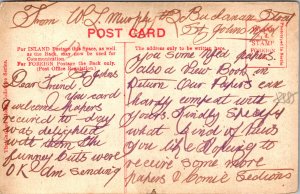 From W L Murphy #3 Buchanan Street
St. Johns Nfld
POST CARD
For INLAND Postage this Space, as well
as the Back, may now be used for
Communication.
For FOREIGN Postage the Back only.
(Post Office Regulation).
The address only to be written here.
STAMP
Dear Friend
you card
& welcome papers
recived to-day
was delighted
with them the
funney cuts were
OK Am sending
You some papers
& also a View Book in
Return Our Papers can
hardly compet with
yours. Kindly Specify
what kind of Views
you like Hoping to
receive some more
papers & Comic Sections